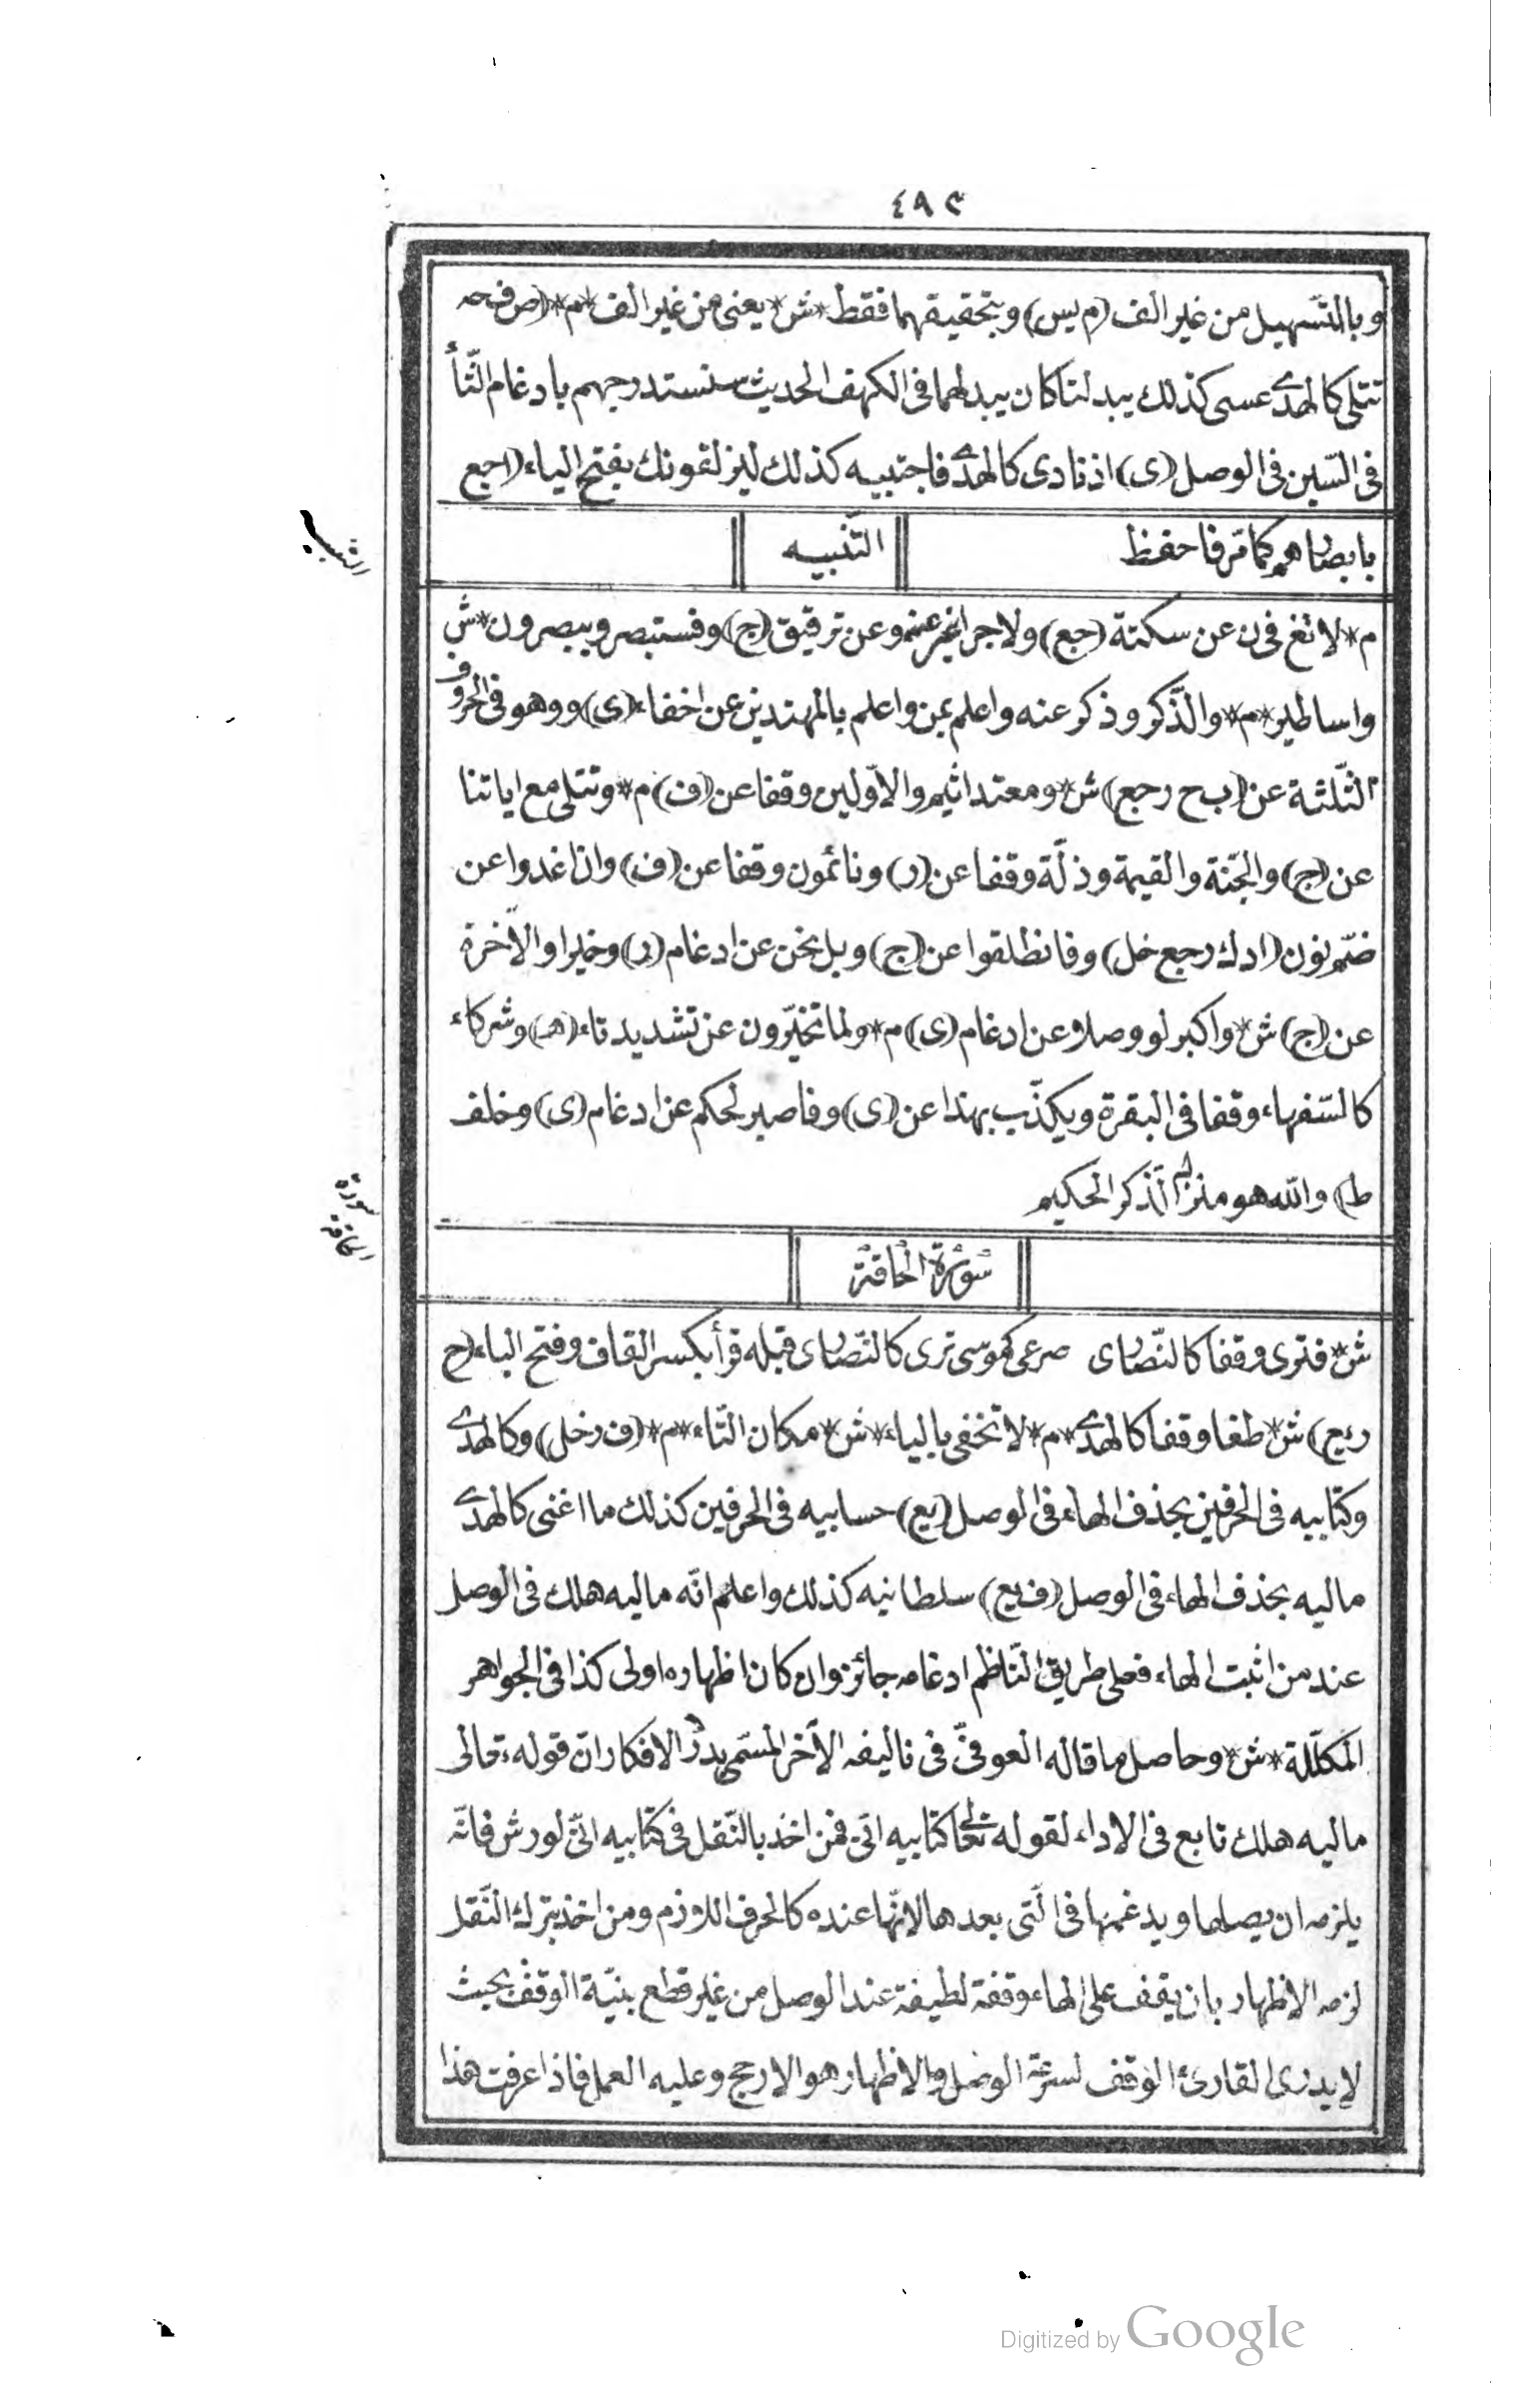 ٤٩٢
وبالتّسهيل من غير الف (م یس) وبتحقيقهما فقط *ش* يعنى من غير الف *م* (ص ف حه
تتلى كالهدى عسى كذلك يبدلنا كان يبدلهما فى الكهف الحديث سنستدرجهم بادغام الثّأ
فى السّين فى الوصل (ى) اذ نادى كالهدى فاجتبيه كذلك ليزلقونك بفتح الياء (ا جع
بابصارهم كما مرّ فاحفظ
التّنبيه
التنبيه
م* لا تغ فى ن عن سكتة (جع) ولاجرا غير عنه وعن ترقيق (ج) وفستبصر ويبصرون *ش
واساطير *م* والذّكر و ذكر عنه واعلم بمن واعلم بالمهتدين عن اخفاء (ى) ووهو فى الحروف
الثّلثة عن (ب ح ر جع) ش* ومعتد اثيم والاوّلين وقفا عن (ف) م* وتتلى مع اياتنا
عن (ج) والجنّة والقيمة وذلّة وقفا عن (ر) ونائمون وقفا عن (ف) وان اغدوا عن
ضمّ نون (ا د ك ر جع خل) وفانطلقوا عن (ج) وبل نحن عن ادغام (ر) وخيرا والاخرة
عن (ج) ش* واكبر لو وصلا عن ادغام (ى) م* ولما تخيّرون عن تشديد تاء (هـ) وشركاء
كالسّفهاء وقفا فى البقرة ويكذّب بهذا عن (ى) وفاصبر لحكم عن ادغام (ى) وخلف
ط) والله هو منزل الذّكر الحكيم
سورة الحاقة
سورة الحاقّة
ش* فترى وقفا كالنّصارى صرعى كموسى ترى كالنّصارى قبله قرأ بكسر القاف وفتح الباء (ح
ر يع) ش* طغا وقفا كالهدى *م* لا تخفى بالياء *ش* مكان التّاء *م* (ف ر خل) وكالهدى
وكتابيه فى الحرفين بحذف الهاء فى الوصل (يع) حسابيه فى الحرفين كذلك ما اغنى كالهدى
ماليه بحذف الهاء فى الوصل (ف يع) سلطانيه كذلك واعلم انّه ماليه هلك فى الوصل
عند من اثبت الهاء فعلى طريق النّاظم ادغامه جائز وان كان اظهاره اولى كذا فى الجواهر
المكلّلة *ش* وحاصل ما قاله العوفىّ فى تاليفه الاخر المسمّى بدرّ الافكار انّ قوله تعالى
ماليه هلك تابع فى الاداء لقوله تعالى كتابيه انّى فمن اخذ بالنّقل فى كتابيه انّى لورش فانّه
يلزمه ان يصلها ويدغمها فى الّتى بعدها لانّها عنده كالحرف اللازم ومن اخذ بترك النّقل
لزمه الاظهار بان يقف على الهاء وقفة لطيفة عند الوصل من غير قطع بنيّة الوقف بحيث
لا يدرى القارئ الوقف لسرعة الوصل والاظهار هو الارجح وعليه العمل فاذا عرفت هذا
Digitized by Google